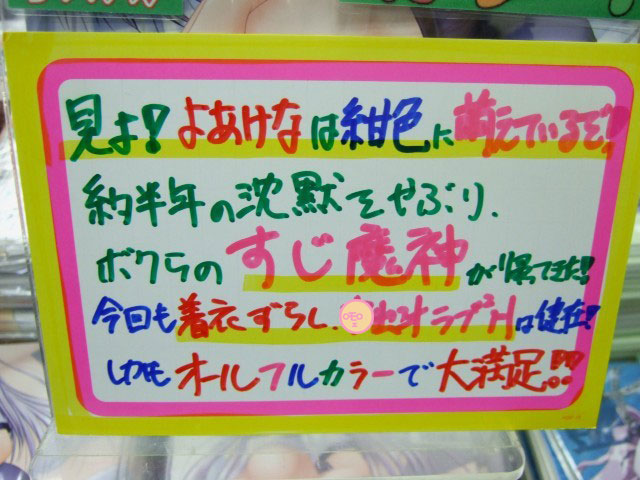 見よ!よあけなは紺色に萌えているぞ!
約半年の沈黙をやぶり、
ボクらのすじ魔神が帰ってきた!!
今日も着衣ずらし、汁ラブラブHは健在!
しかもオールフルカラーで大満足!!